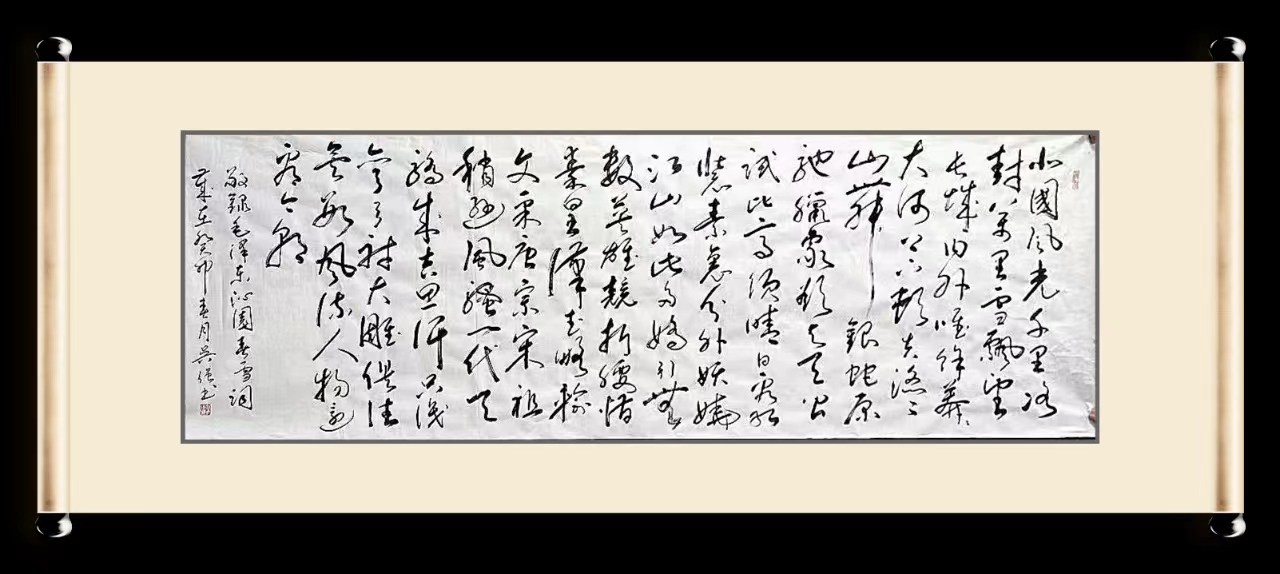 北國风光千里冰
封万里雪飄望
长城内外唯馀莽々
大河上下顿失滔々
山舞銀蛇原
驰臘象欲与天公
試比高须晴日看红
装素裹分外妖娆
江山如此多嬌引無
数英雄競折腰惜
秦皇漢武略输
文采唐宗宋祖
稍逊風骚一代天
骄成吉思汗只识
弯弓射大雕俱往
矣数風流人物还
看今朝
敬録毛澤東沁園春雪词
歲在癸卯春月吴书